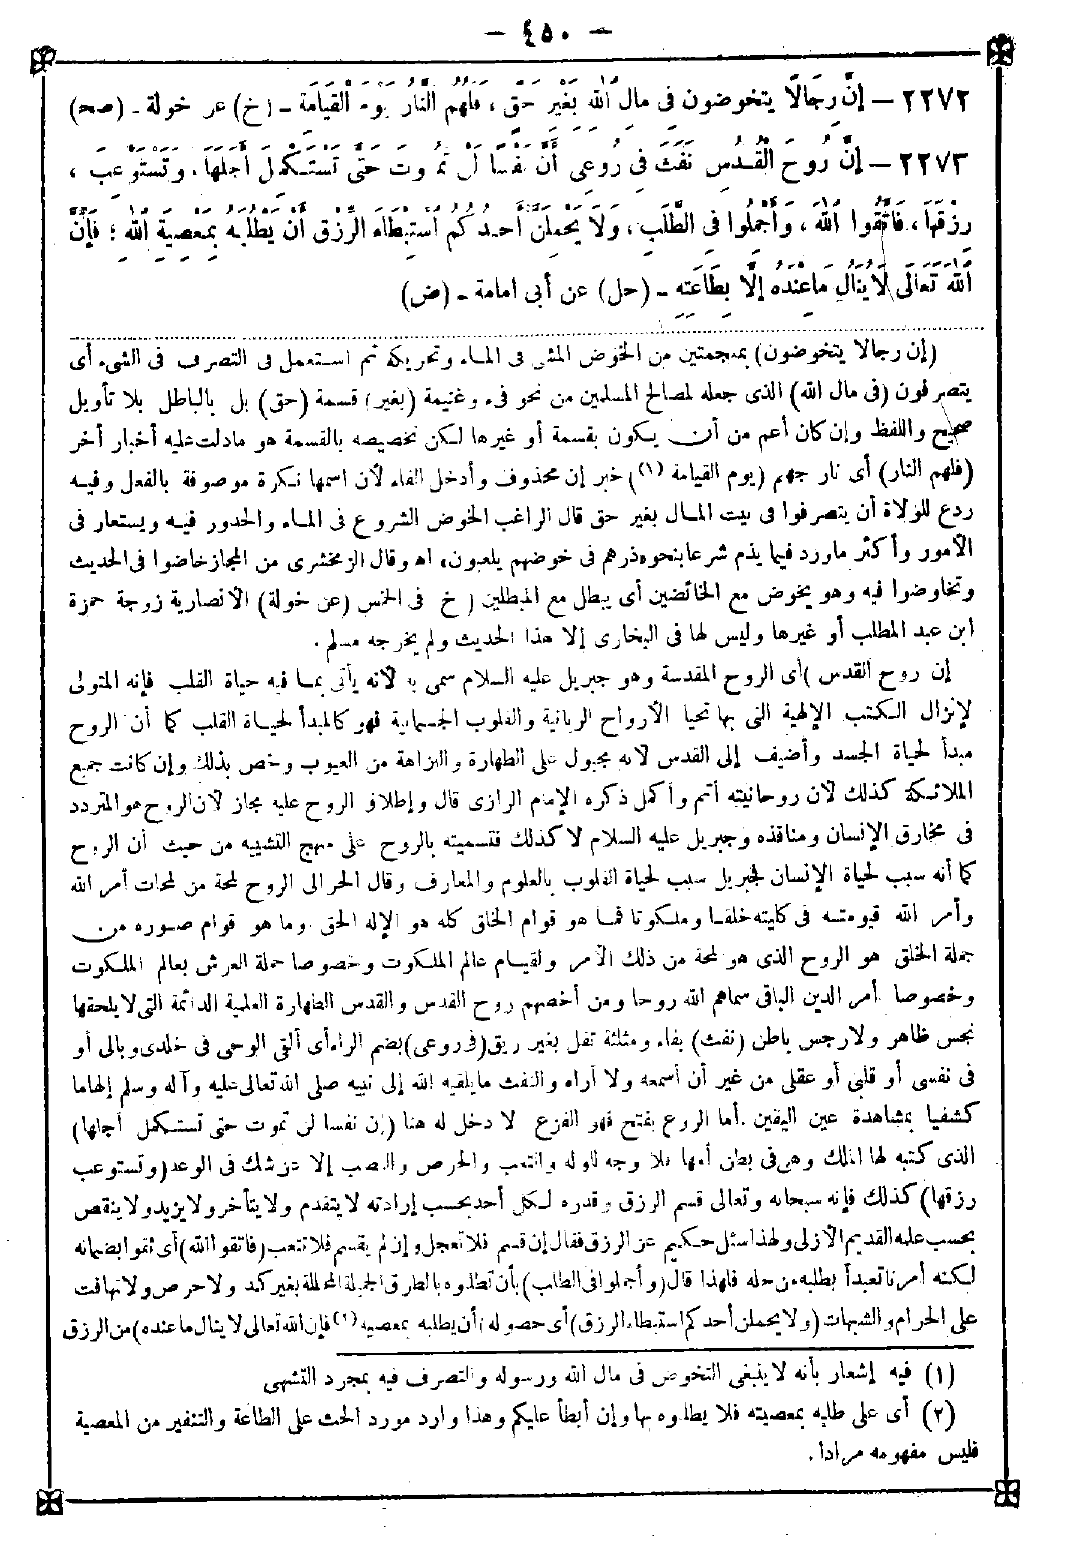 — ٤٥٠ —
٢٢٧٢ — إِنَّ رِجَالًا يتخوضون فِي مال اللهِ بِغَيْرِ حَقٍّ ، فَلَهُمُ النَّارُ يَوْمَ الْقِيَامَةِ ـ (خ) عن خولة ـ (صح)
٢٢٧٣ — إِنَّ رُوحَ الْقُدُسِ نَفَثَ فِي رُوعِي أَنَّ نَفْسًا لَنْ تَمُوتَ حَتَّى تَسْتَكْمِلَ أَجَلَهَا، وَتَسْتَوْعِبَ ،
رِزْقَهَا ، فَاتَّقُوا اللهَ ، وَأَجْمِلُوا فِي الطَّلَبِ ، وَلَا يَحْمِلَنَّ أَحَدَكُمُ اسْتِبْطَاءُ الرِّزْقِ أَنْ يَطْلُبَهُ بِمَعْصِيَةِ اللهِ ؛ فَإِنَّ
اللهَ تَعَالَى لَا يُنَالُ مَا عِنْدَهُ إِلَّا بِطَاعَتِهِ ـ (حل) عن أبى امامة ـ (ض)
(إن رجالا يتخوضون) بمعجمتين من الخوض المشى فى الماء وتحريكه ثم استعمل فى التصرف فى الشىء أى
يتصرفون (فى مال الله) الذى جعله لمصالح المسلمين من نحو فىء وغنيمة (بغير) قسمة (حق) بل بالباطل بلا تأويل
صحيح واللفظ وإن كان أعم من أن يكون بقسمة أو غيرها لكن تخصيصه بالقسمة هو ما دلت عليه أخبار أخر
(فلهم النار) أى نار جهم (يوم القيامة (١)) خبر إن محذوف وأدخل الفاء لأن اسمها نكرة موصوفة بالفعل وفيه
ردع للولاة أن يتصرفوا فى بيت المال بغير حق قال الراغب الخوض الشروع فى الماء والحدور فيه ويستعار فى
الأمور وأكثر ماورد فيما يذم شرعا بنحو، ذرهم فى خوضهم يلعبون، اهـ وقال الزمخشرى من المجاز خاضوا فى الحديث
وتخاوضوا فيه وهو يخوض مع الخائضين أى يبطل مع المبطلين ( خ فى الخمس (عن خولة) الأنصارية زوجة حمزة
ابن عبد المطلب أو غيرها وليس لها فى البخارى إلا هذا الحديث ولم يخرجه مسلم .
إن روح القدس )أى الروح المقدسة وهو جبريل عليه السلام سمى به لأنه يأتى بما فيه حياة القلب فإنه المتولى
لإنزال الكتب الإلهية التى بها تحيا الأرواح الربانية والقلوب الجسمانية فهو كالمبدأ لحياة القلب كما أن الروح
مبدأ لحياة الجسد وأضيف إلى القدس لأنه مجبول على الطهارة والنزاهة من العيوب وخص بذلك وإن كانت جميع
الملائكة كذلك لأن روحانيته أتم وأكمل ذكره الإمام الرازى قال وإطلاق الروح عليه مجاز لأن الروح هو المتردد
فى مخارق الإنسان ومنافذه وجبريل عليه السلام لا كذلك فتسميته بالروح على منهج التشبيه من حيث أن الروح
كما أنه سبب لحياة الإنسان فجبريل سبب لحياة القلوب بالعلوم والمعارف وقال الحرالى الروح لمحة من لمحات أمر الله
وأمر الله قيومته فى كليته خلقا وملكوتا فما هو قوام الخلق كله هو الإله الحق وما هو قوام صوره من
جملة الخلق هو الروح الذى هو لمحة من ذلك الأمر ولقيام عالم الملكوت وخصوصا حملة العرش بعالم الملكوت
وخصوصا أمر الدين الباقى سماهم الله روحا ومن أخصهم روح القدس والقدس الطهارة العلمية الدائمة التى لا يلحقها
نجس ظاهر ولا رجس باطن (نفث) بفاء ومثلثة تفل بغير ريق (فى روعى) بضم الراء أى ألقى الوحى فى خلدى وبالى أو
فى نفسى أو قلبى أو عقلى من غير أن أسمعه ولا أراه والنفث ما يلقيه الله إلى نبيه صلى الله تعالى عليه وآله وسلم إلهاما
كشفيا بمشاهدة عين اليقين . أما الروع بفتح فهو الفزع لا دخل له هنا (إن نفسا لن تموت حتى تستكمل أجلها)
الذى كتبه لها الملك وهى فى بطن أمها فلا وجه للوله والتعب والحرص والنصب إلا عن شك فى الوعد (وتستوعب
رزقها) كذلك فإنه سبحانه وتعالى قسم الرزق وقدره لكل أحد بحسب إرادته لا يتقدم ولا يتأخر ولا يزيد ولا ينقص
بحسب علمه القديم الأزلى ولهذا سئل حكيم عن الرزق فقال إن قسم فلا تعجل وإن لم يقسم فلا تتعب (فاتقوا الله) أى ثقوا بضمانه
لكنه أمرنا تعبدا بطلبه من حله فلهذا قال (وأجملوا فى الطلب) بأن تطلبوه بالطرق الجميلة المحللة بغير كد ولا حرص ولا تهافت
على الحرام والشبهات (ولا يحملن أحدكم استبطاء الرزق) أى حصوله (أن يطلبه بمعصية (٢) فإن الله تعالى لا ينال ما عنده) من الرزق
(١) فيه إشعار بأنه لا ينبغى التخوض فى مال الله ورسوله والتصرف فيه بمجرد التشهى
(٢) أى على طلبه بمعصيته فلا يطلبوه بها وإن أبطأ عليكم وهذا وارد مورد الحث على الطاعة والتنفير من المعصية
فليس مفهومه مرادا .